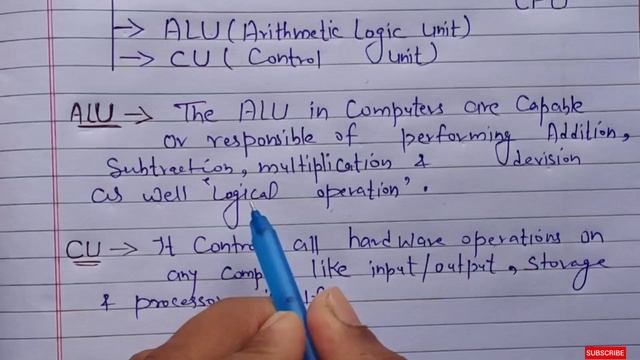 CPU
→ ALU (Arithmetic Logic unit)
→ CU ( Control unit)
ALU → The ALU in Computers are Capable
or responsible of performing Addition,
Subtraction, multiplication & devision
as well "Logical operation".
CU → It Control all hardware operations on
any comp like input/output, storage
& processor
SUBSCRIBE